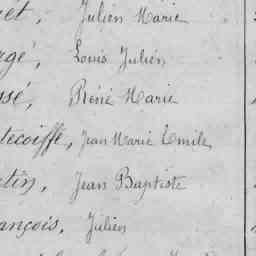 et, Julien Marie
gé, Louis Julien
ssé, René Marie
tecoiffe, Jean Marie Emile
tin, Jean Baptiste
ançois, Julien